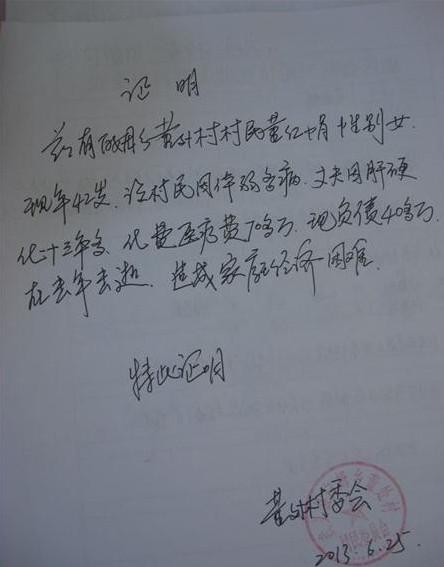 证明
兹有 乡黄 村村民黄红 性别女.
现年42岁.该村民因体弱多病.丈夫因肝硬
化十三年多 化费医疗费70多万.现负债40多万.
在去年去逝.造成家庭经济困难.
特此证明
黄 村委会
2013.6.25.